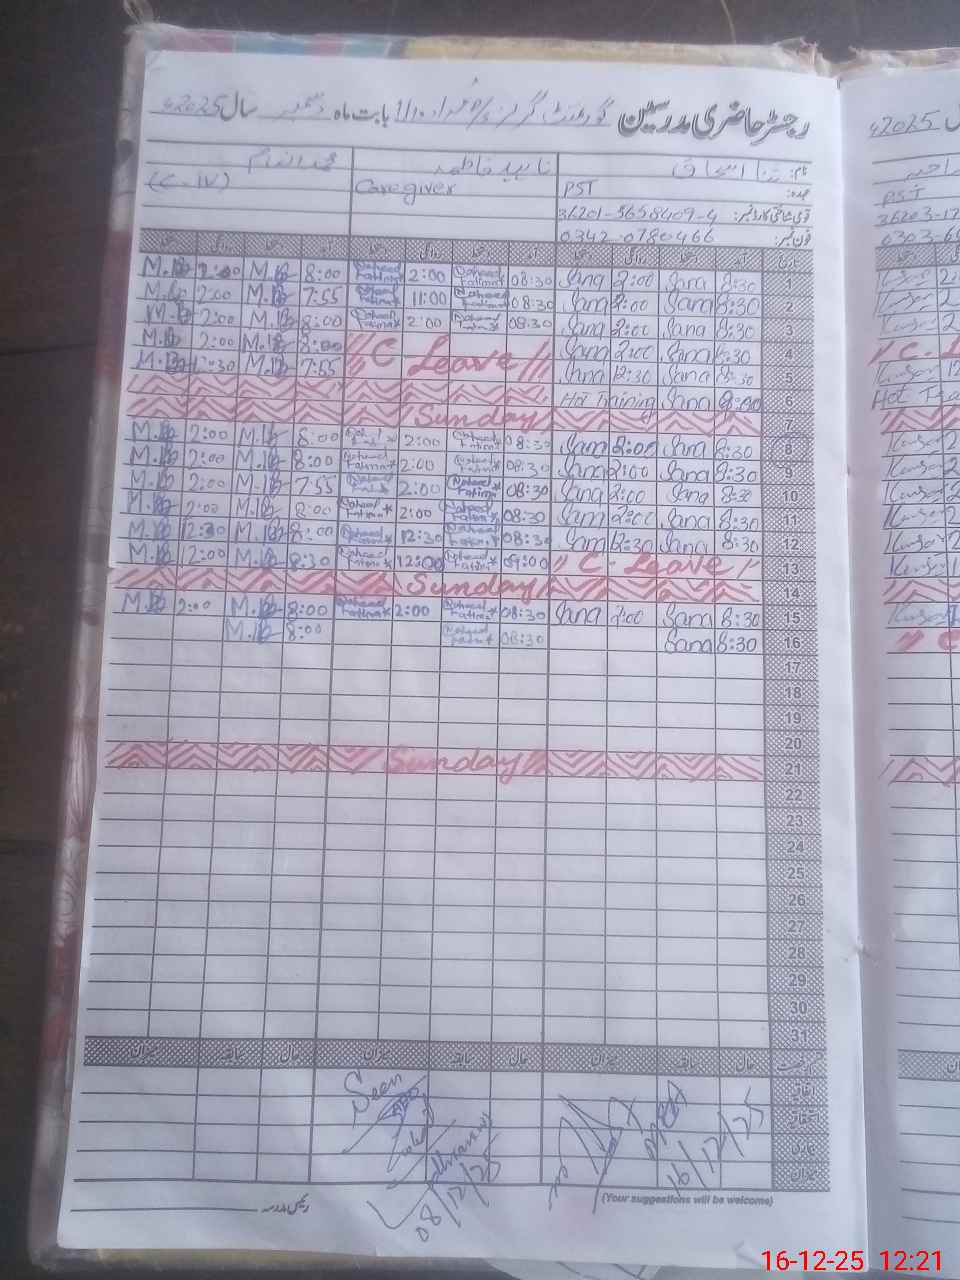 رجسٹر حاضری مدرسین گورنمنٹ گرلز بابت ماہ دسمبر سال 2025ء
نام: ثنا اسحاق ناہید فاطمہ محمد
عہدہ: PST Caregiver (C-IV)
قومی شناختی کارڈ نمبر: 36201-5658409-4
فون نمبر: 0342-0780466
M.B 2:00 M.B 8:00 Naheed Fatima 2:00 Naheed Fatima 08:30 Sana 2:00 Sana 8:30 1
M.B 2:00 M.B 7:55 Naheed Fatima 11:00 Naheed Fatima 08:30 Sana 2:00 Sana 8:30 2
M.B 2:00 M.B 8:00 Naheed Fatima 2:00 Naheed Fatima 08:30 Sana 2:00 Sana 8:30 3
M.B 2:00 M.B 8:00 // C - Leave // Sana 2:00 Sana 8:30 4
M.B 12:30 M.B 7:55 Sana 12:30 Sana 8:30 5
Hot Training Sana 8:00 6
Sunday 7
M.B 2:00 M.B 8:00 2:00 Naheed Fatima 08:30 Sana 2:00 Sana 8:30 8
M.B 2:00 M.B 8:00 Naheed Fatima 2:00 Naheed Fatima 08:30 Sana 2:00 Sana 8:30 9
M.B 2:00 M.B 7:55 Naheed Fatima 2:00 Naheed Fatima 08:30 Sana 2:00 Sana 8:30 10
M.B 2:00 M.B 8:00 Naheed Fatima 2:00 Naheed Fatima 08:30 Sana 2:00 Sana 8:30 11
M.B 12:30 M.B 8:00 Naheed Fatima 12:30 Naheed Fatima 08:30 Sana 12:30 Sana 8:30 12
M.B 2:00 M.B 8:30 Naheed Fatima 12:00 Naheed Fatima 09:00 // C - Leave // 13
Sunday 14
M.B 2:00 M.B 8:00 Naheed Fatima 2:00 Naheed Fatima 08:30 Sana 2:00 Sana 8:30 15
M.B 8:00 Naheed Fatima 08:30 Sana 8:30 16
17
18
19
20
Sunday 21
22
23
24
25
26
27
28
29
30
31
حال سابقہ میزان حال سابقہ میزان حال سابقہ میزان
اتفاقیہ
استحقاقیہ
میزان
Seen
08/12/25
16/12/25
(Your suggestions will be welcome)
رئیس مدرسہ
2025ء
PST
36203-17
0303-6
16-12-25 12:21